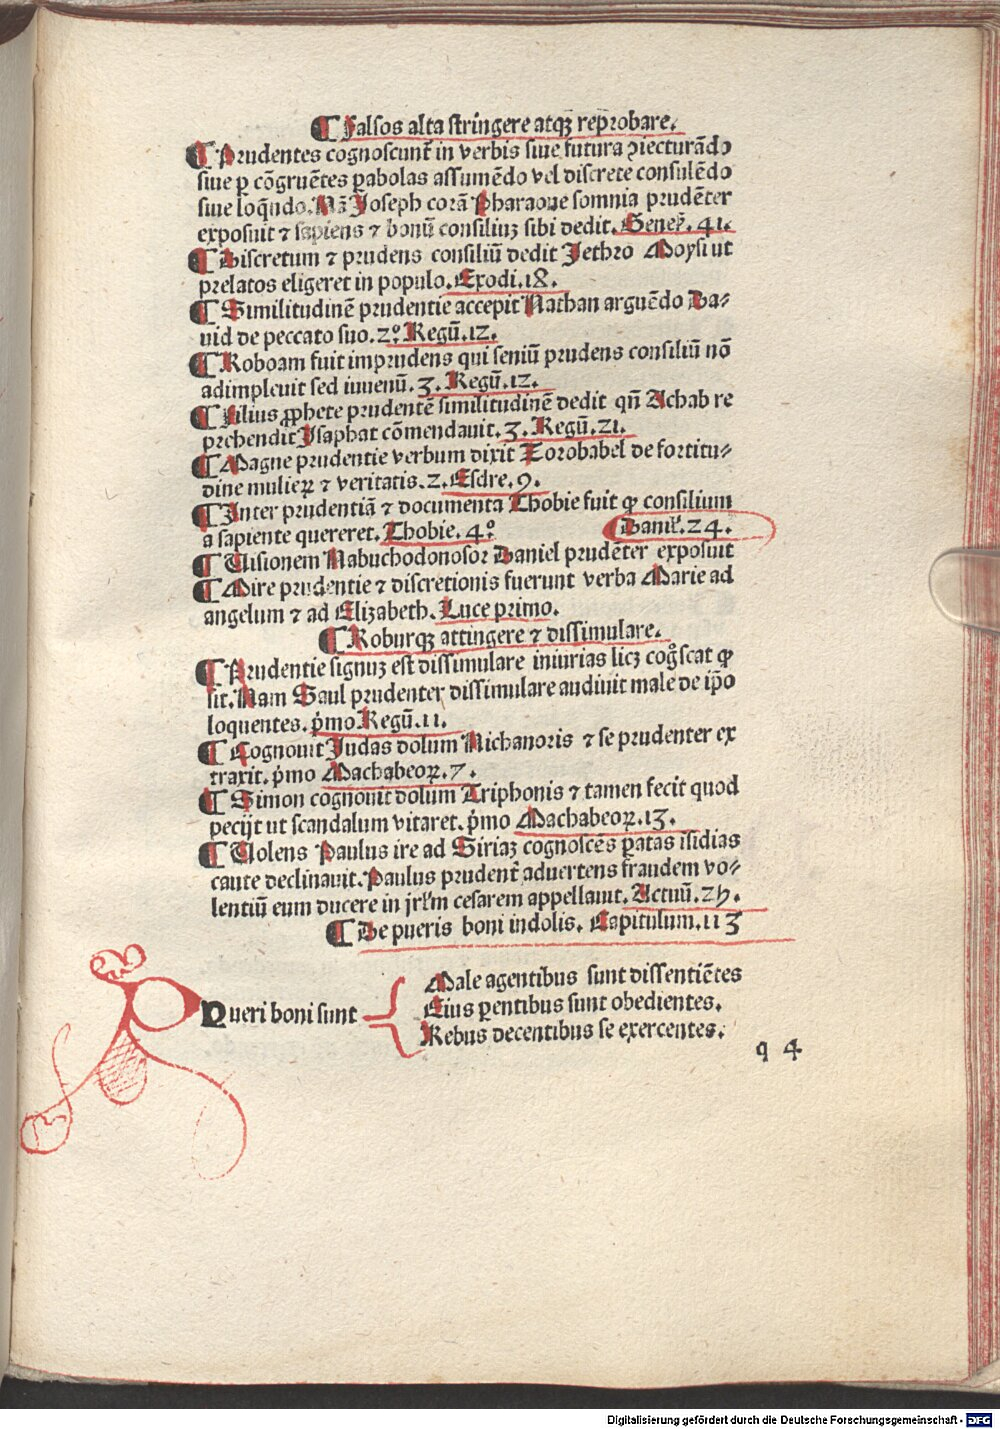 ¶ Falsos alta stringere atqꝫ rep̃robare.
¶ Prudentes cognoscunt᷑ in verbis siue futura ꝯiecturãdo
siue ꝑ cõgruẽtes ꝑabolas assumẽdo vel discrete consulẽdo
siue loq̃ndo. Nã Joseph corã Pharaone somnia prudẽter
exposuit ⁊ sapiens ⁊ bonũ consiliuꝫ sibi dedit. Geneẜ. 41.
¶ Discretum ⁊ prudens consiliũ dedit Jethro Moysi ut
prelatos eligeret in populo. Exodi. 18.
¶ Similitudinẽ prudentie accepit Nathan arguẽdo Da⸗
uid de peccato suo. 2º. Regũ. 12.
¶ Roboam fuit imprudens qui seniũ prudens consiliũ nõ
adimpleuit sed iuuenũ. 3. Regũ. 12.
¶ Filius ꝓphete prudentẽ similitudinẽ dedit qñ Achab re
prehendit Jsaphat cõmendauit. 3. Regũ. 21.
¶ Magne prudentie verbum dixit Zorobabel de fortitu⸗
dine mulieꝝ ⁊ veritatis. 2. Esdre. 9.
¶ Inter prudentiã ⁊ documenta Thobie fuit ꝙ consilium
a sapiente quereret. Thobie. 4º Daniel̓. 24.
¶ Uisionem Nabuchodonosor Daniel prudẽter exposuit
¶ Mire prudentie ⁊ discretionis fuerunt verba Marie ad
angelum ⁊ ad Elizabeth. Luce primo.
¶ Roburqꝫ attingere ⁊ dissimulare.
¶ Prudentie signuꝫ est dissimulare iniurias licꝫ cogͦscat ꝙ
sit. Nam Saul prudenter dissimulare audiuit male de ip̃o
loquentes. p̓mo Regũ. 11.
¶ Cognouit Judas dolum Nichanoris ⁊ se prudenter ex
traxit. p̓mo Machabeoꝝ. 7.
¶ Simon cognouit dolum Triphonis ⁊ tamen fecit quod
pecijt ut scandalum vitaret. p̓mo Machabeoꝝ. 13.
¶ Uolens Paulus ire ad Siriaꝫ cognoscẽs ꝑatas ĩsidias
caute declinauit. Paulus prudent᷑ aduertens fraudem vo⸗
lentiũ eum ducere in jrl̓m cesarem appellauit. Actuũ. 25.
¶ De pueris boni indolis. Capitulum. 113
Pueri boni sunt
Male agentibus sunt dissentiẽtes
Eius ꝑentibus sunt obedientes.
Rebus decentibus se exercentes.
q 4
Digitalisierung gefördert durch die Deutsche Forschungsgemeinschaft - DFG